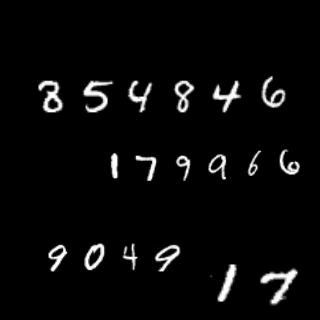 354846
179966
9049
17